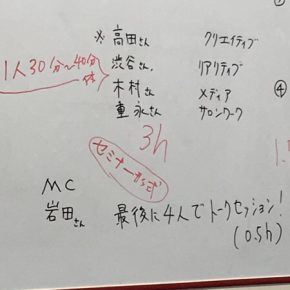 ※ 高田さん クリエイティブ
渋谷さん、 リアクティブ
木村さん メディア
重永さん サロンワーク
1人30分~40分
3h
セミナー形式
MC
岩田さん 最後に4人でトークセッション!
(0.5h)
④